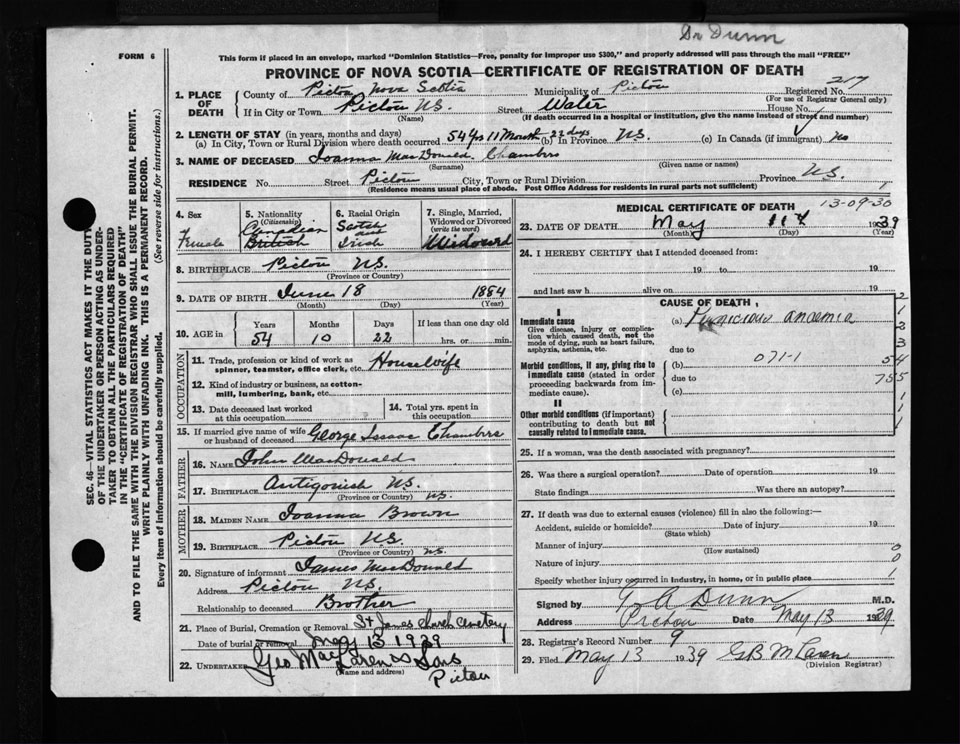 Dr Dunn
FORM 6
This form if placed in an envelope, marked "Dominion Statistics—Free, penalty for improper use $300," and properly addressed will pass through the mail "FREE"
PROVINCE OF NOVA SCOTIA—CERTIFICATE OF REGISTRATION OF DEATH
1. PLACE OF DEATH County of Pictou Nova Scotia Municipality of Pictou Registered No. 217
(For use of Registrar General only)
If in City or Town Pictou N.S. Street Water House No.
(Name) (If death occurred in a hospital or institution, give the name instead of street and number)
2. LENGTH OF STAY (in years, months and days)
(a) In City, Town or Rural Division where death occurred 54 Yrs 11 Month 22 days (b) In Province N.S. (c) In Canada (if immigrant) No
3. NAME OF DECEASED Joanna MacDonald Chambers
(Surname) (Given name or names)
RESIDENCE No. Street Pictou City, Town or Rural Division Province N.S.
(Residence means usual place of abode. Post Office Address for residents in rural parts not sufficient)
SEC. 46—VITAL STATISTICS ACT MAKES IT THE DUTY
OF THE UNDERTAKER OR PERSON ACTING AS UNDER-
TAKER TO OBTAIN ALL THE PARTICULARS REQUIRED
IN THE "CERTIFICATE OF REGISTRATION OF DEATH"
AND TO FILE THE SAME WITH THE DIVISION REGISTRAR WHO SHALL ISSUE THE BURIAL PERMIT.
WRITE PLAINLY WITH UNFADING INK. THIS IS A PERMANENT RECORD.
Every item of information should be carefully supplied. (See reverse side for instructions.)
4. Sex
Female
5. Nationality
(Citizenship)
Canadian
British
6. Racial Origin
Scotch
and
Irish
7. Single, Married,
Widowed or Divorced
(write the word)
Widowed
8. BIRTHPLACE Pictou N.S.
(Province or Country)
9. DATE OF BIRTH June 18 1884
(Month) (Day) (Year)
10. AGE in Years Months Days If less than one day old
54 10 22 hrs. or min.
OCCUPATION
11. Trade, profession or kind of work as
spinner, teamster, office clerk, etc. Housewife
12. Kind of industry or business, as cotton-
mill, lumbering, bank, etc.
13. Date deceased last worked
at this occupation
14. Total yrs. spent in
this occupation
15. If married give name of wife
or husband of deceased George Isaac Chambers
FATHER
16. Name John MacDonald
17. Birthplace Antigonish N.S.
(Province or Country) N.S.
MOTHER
18. Maiden Name Joanna Brown
19. Birthplace Pictou N.S.
(Province or Country) N.S.
20. Signature of informant James MacDonald
Address Pictou N.S.
Relationship to deceased Brother
21. Place of Burial, Cremation or Removal St James Church Cemetery
Date of burial or removal May 13 1939
22. Undertaker Geo MacLaren & Sons
(Name and address)
Pictou
MEDICAL CERTIFICATE OF DEATH 13-09-30
23. DATE OF DEATH May 11th 1939
(Month) (Day) (Year)
24. I HEREBY CERTIFY that I attended deceased from:
19 to 19
and last saw h alive on 19
CAUSE OF DEATH
I
Immediate cause
Give disease, injury or complica-
tion which caused death, not the
mode of dying, such as heart failure,
asphyxia, asthenia, etc.
(a) Pernicious anaemia
due to
Morbid conditions, if any, giving rise to
immediate cause (stated in order
proceeding backwards from im-
mediate cause).
(b) 071-1
due to
(c)
II
Other morbid conditions (if important)
contributing to death but not
causally related to immediate cause.
2
1
3
3
54
755
1
1
1
25. If a woman, was the death associated with pregnancy?
26. Was there a surgical operation? Date of operation 19
State findings Was there an autopsy?
27. If death was due to external causes (violence) fill in also the following:—
Accident, suicide or homicide? Date of injury 19
(State which)
Manner of injury 0
(How sustained)
Nature of injury 0
Specify whether injury occurred in industry, in home, or in public place 1
Signed by G A Dunn M.D.
Address Pictou Date May 13 1939
28. Registrar's Record Number 9
29. Filed May 13 1939 GB McLaren
(Division Registrar)